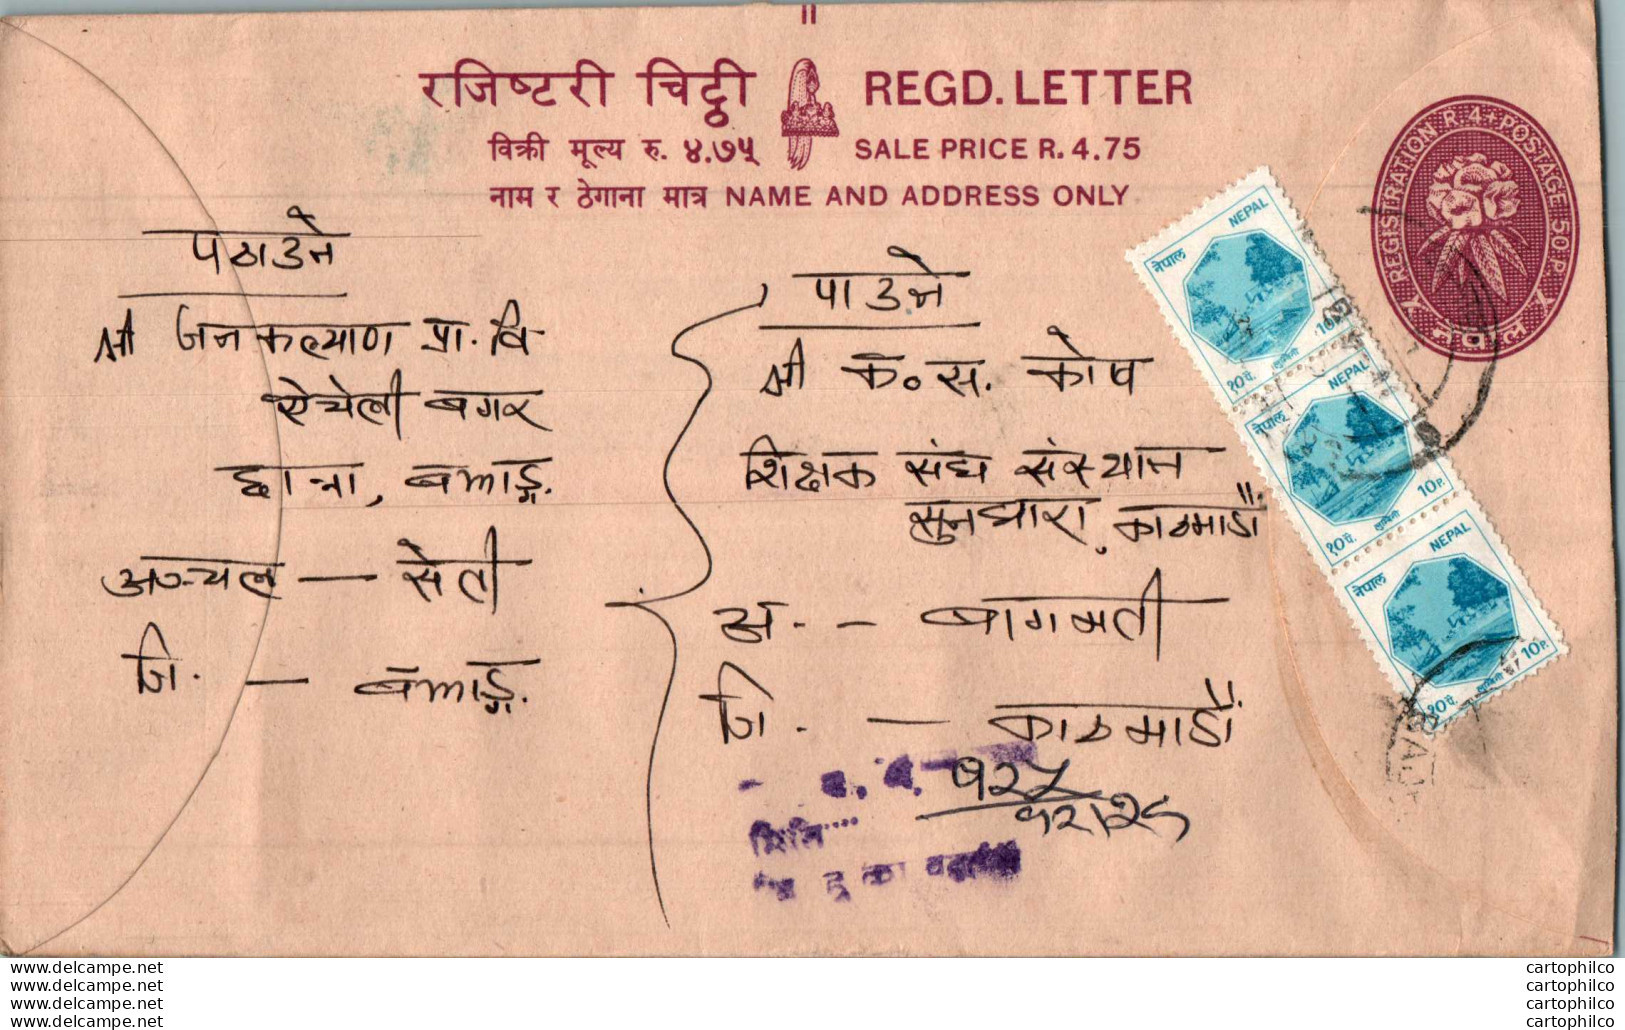 रजिष्टरी चिट्ठी REGD. LETTER
विक्री मूल्य रु. ४.७५ SALE PRICE R. 4.75
नाम र ठेगाना मात्र NAME AND ADDRESS ONLY
REGISTRATION R.4+POSTAGE 50 P.
नेपाल
पठाउने
श्री जनकल्याण प्रा. वि
बगर
छान्ना, बझाङ्ग.
अञ्चल — सेती
जि. — बझाङ्ग.
पाउने
श्री क. स. कोष
शिक्षक संघ संस्थान
सुनधारा, काठमाडौं
अं. - - बागमती
जि. - — काठमाडौं
मिति
नेपाल NEPAL
१० पै. लुम्बिनी 10 P.
नेपाल NEPAL
१० पै. लुम्बिनी 10 P.
नेपाल NEPAL
१० पै. लुम्बिनी 10 P.
www.delcampe.net
www.delcampe.net
www.delcampe.net
www.delcampe.net
cartophilco
cartophilco
cartophilco
cartophilco